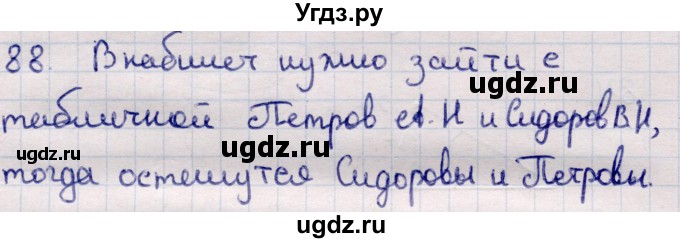 Угдз.ру
88. В кабинет нужно зайти с
табличкой Петров А. Н и Сидоров В Н,
тогда останутся Сидоровы и Петровы.
ugdz.ru ugdz.ru ugdz.ru
ugdz.ru ugdz.ru
ugdz.ru